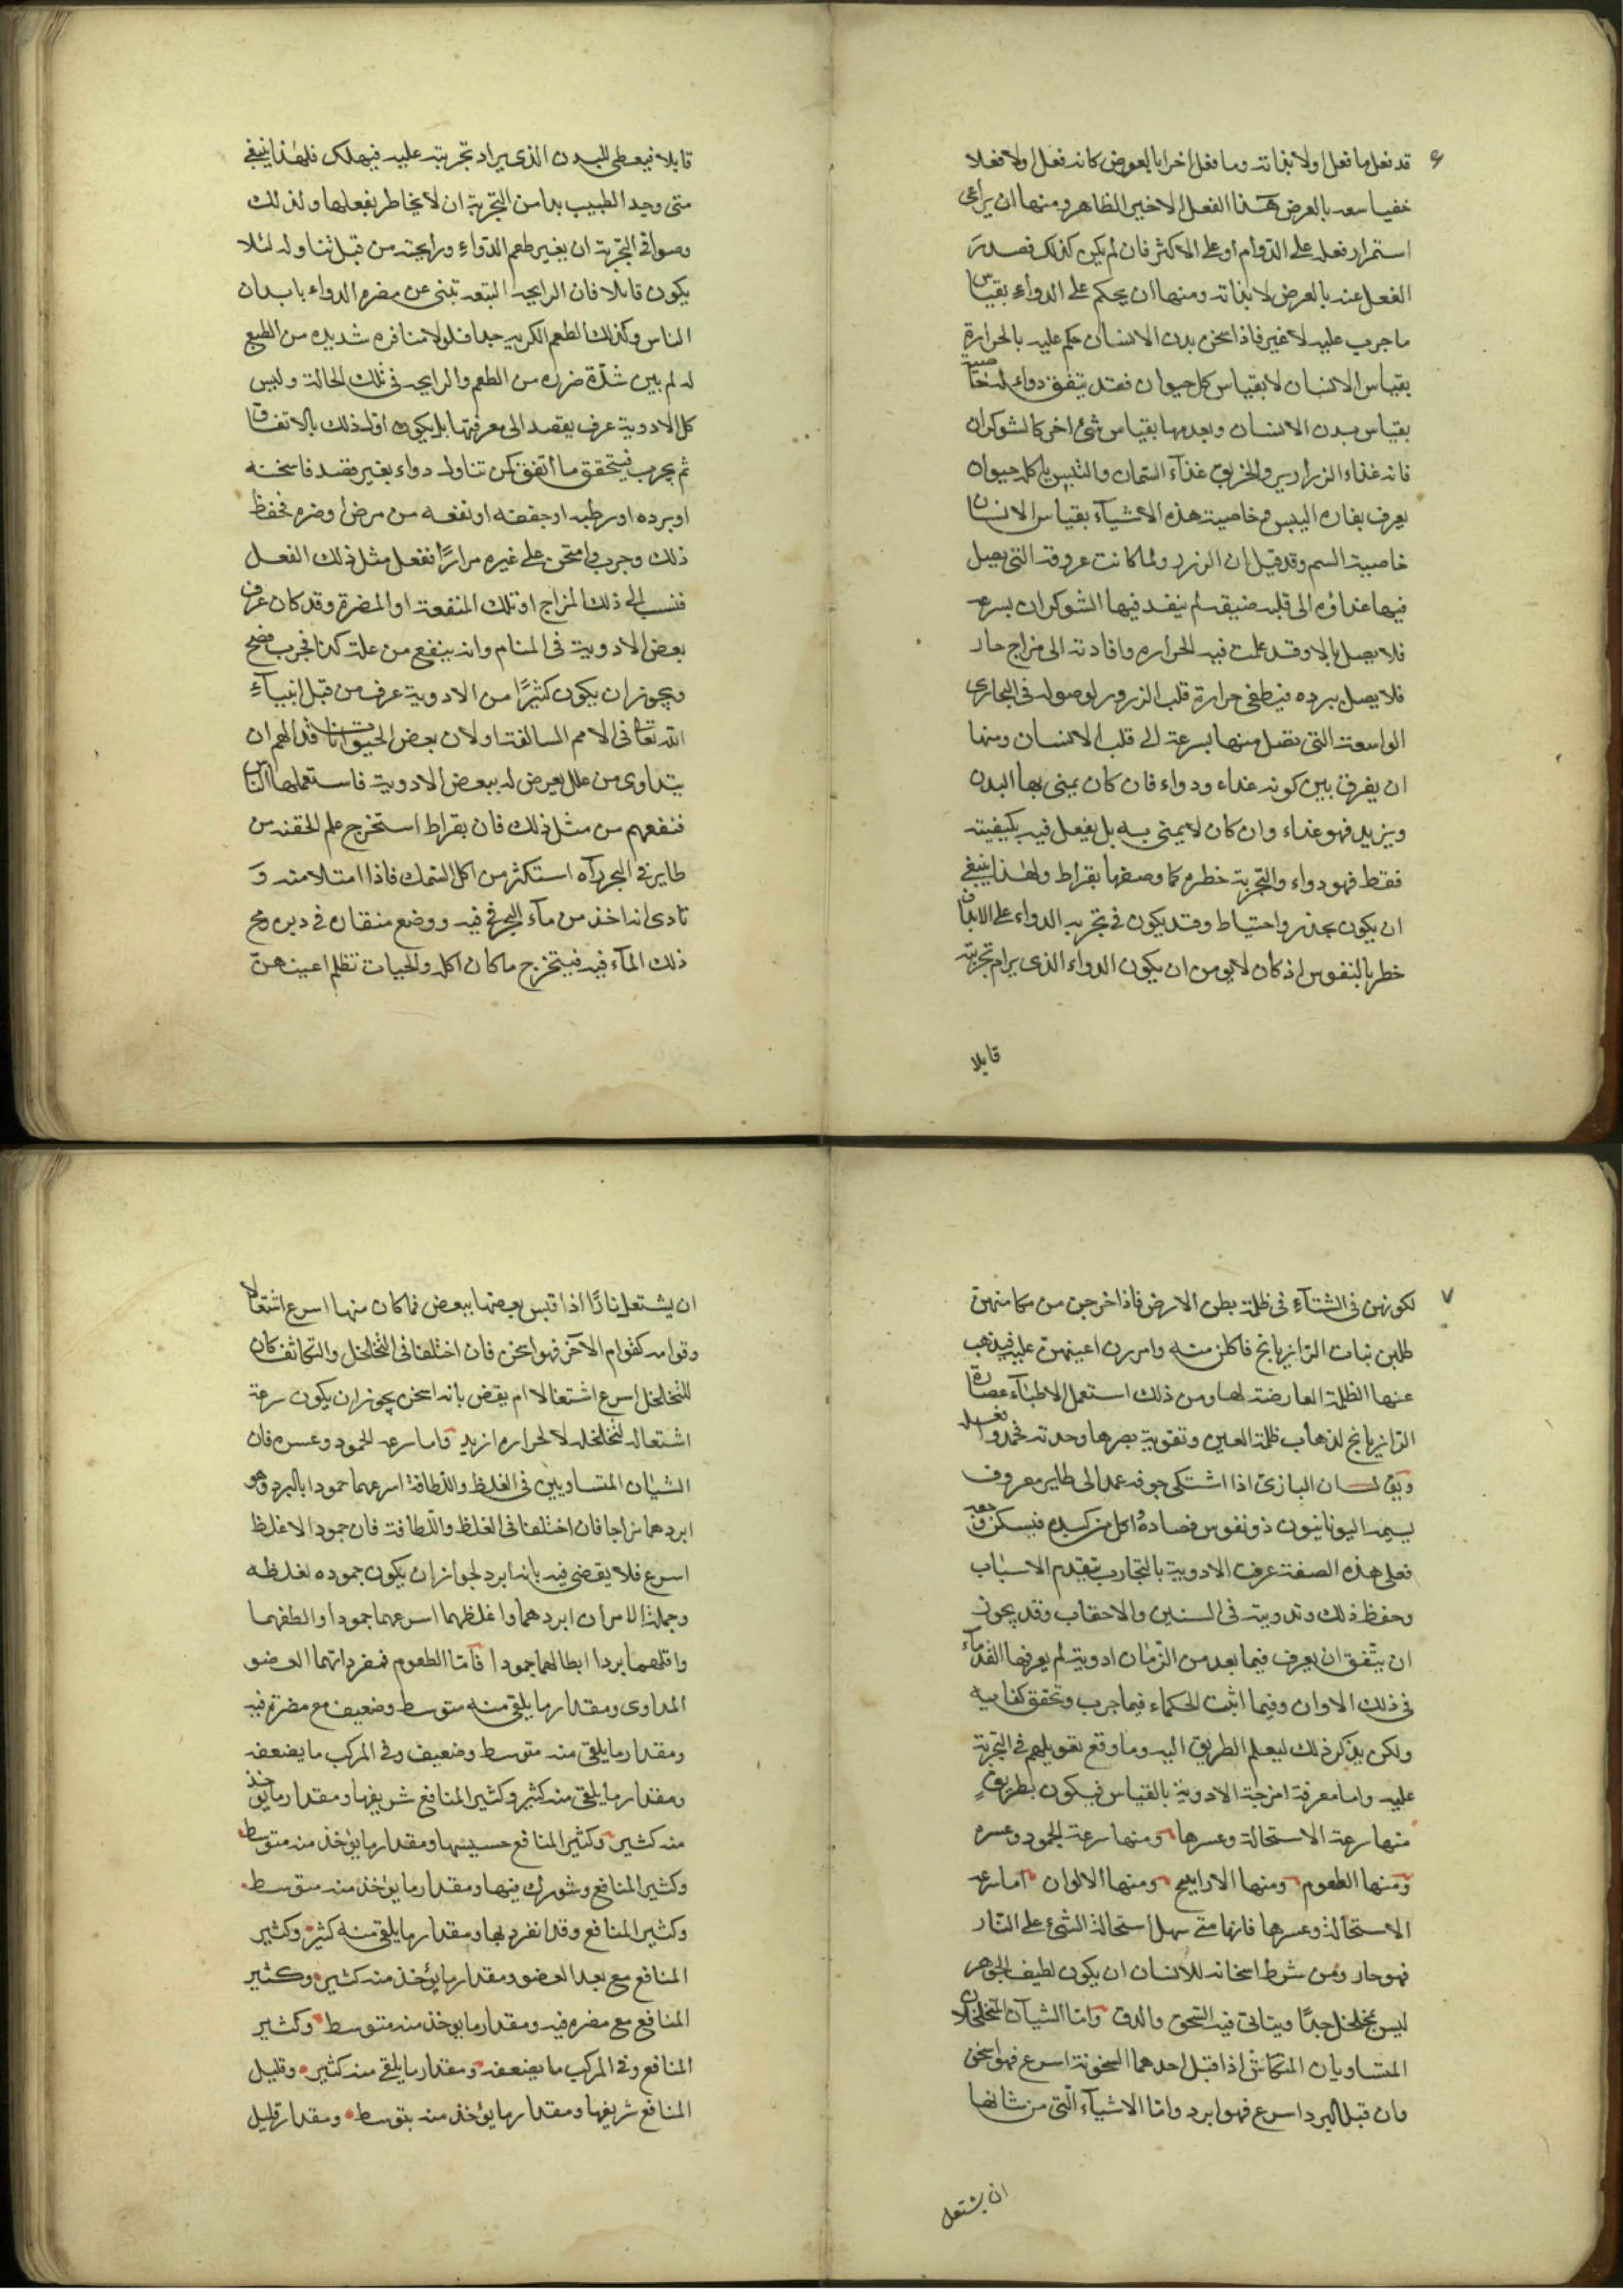 ٦
قد فعل ما فعل اولا بذاته وما فعل اخرا بالعرض كانه فعل اولا فعلا
خفيا بعد بالعرض هذا الفعل الاخير الظاهر ومنها ان يراعى
استمرار فعله على الدوام او على الاكثر فان لم يكن كذلك فصدر
الفعل عنه بالعرض لا بذاته ومنها ان يحكم على الدواء بقياس
ما جرب عليه لا غير فاذا سخن بدن الانسان حكم عليه بالحرارة
بقياس الانسان لا بقياس كل حيوان فقد يتفق دواء له خاصية
بقياس بدن الانسان وبعدمها بقياس شئ اخر كالشوكران
فانه غذاء الزرازير والخربق غذآء السمان والتيس بل كل حيوان
يعرف بفاره البيس وخاصية هذه الاشيآء بقياس الانسان
خاصية السم وقد قيل ان الزرزور لما كانت عروقه التى يصل
فيها غذاؤه الى قلبه ضيقه لم ينفد فيها الشوكران بسرعه
فلا يصل الا وقد عملت فيه الحراره وافادته الى مزاج حار
فلا يصل ببرده فيطفى حرارة قلب الزرزور لوصوله فى المجارى
الواسعة التى تصل منها بسرعة الى قلب الانسان ومنها
ان يفرق بين كونه غذاء ودواء فان كان يمنى بها البدن
ويزيد فهو غذاء وان كان لا يمنى به بل يفعل فيه بكيفيته
فقط فهو دواء والتجربة خطره كما وصفها بقراط ولهذا ينبغى
ان يكون بحذر واحتياط وقد يكون فى تجربه الدواء على الابدان
خطر بالنفوس اذ كان لا يومن ان يكون الدواء الذى يرام تجربته
قابلا
قابلا فيعطى للبدن الذى يراد تجربته عليه فيهلك فلهذا ينبغى
متى وجد الطبيب بدا من التجربة ان لا يخاطر بفعلها ولذلك
وصوا فى التجربة ان يغير طعم الدواء ورايحته من قبل تناوله لئلا
يكون قابلا فان الرايحه البتعه تبنى عن مضره الدواء بابدان
الناس وكذلك الطعم الكريه جدا فلولا منافره شديده من الطبع
له لم يبين شدة ضرره من الطعم والرايحه فى تلك الحالة وليس
كل الادوية عرف بقصد الى معرفتها بل يكون اول ذلك بالاتفاق
ثم يجرب فيتحقق ما اتفق كمن تناول دواء بغير قصد فاسخنه
او برده او رطبه او جففه او نفعه من مرض او ضره فحفظ
ذلك وجرب وامتحن على غيره مرارًا ففعل مثل ذلك الفعل
فنسب الى ذلك المزاج او تلك المنفعة او المضرة وقد كان عرف
بعض الادوية فى المنام وانه ينفع من علة كذا فجرب فصح
ويجوز ان يكون كثيرًا من الادوية عرف من قبل انبيآءِ
الله تعا فى الامم السالفة اولان بعض الحيوانات قد الهم ان
يتداوى من علل يعرض له ببعض الادوية فاستعملها الناس
فنفعهم من مثل ذلك فان بقراط استخرج علم الحقنه من
طاير فى البحر رآه استكثر من اكل السمك فاذا امتلا منه و
تاذى انه اخذ من مآء البحر فى فيه ووضع منقاره فى دبره ومج
ذلك المآء فيه فيستخرج ما كان اكله والحيات تظلم اعينهنّ
٧
لكونهن فى الشتآءِ فى ظلمة بطن الارض فاذا خرجن من مكامنهن
طلبن نبات الرازيانج فاكلن منه وامررن اعينهن عليه فيذهب
عنها الظلمة العارضة لها ومن ذلك استعمل الاطبآء عصارة
الرازيانج لذهاب ظلمة العين وتقوية بصرها وحدته فحمدوا فعله
ويق ان البازى اذا اشتكى جوفه عمد الى طاير معروف
يسميه اليونانيون ذونفوس فصاده واكل من كبده فيسكن وجعه
فعلى هذه الصفة عرف الادوية بالتجارب بتقدم الاسباب
وحفظ ذلك وتدوينه فى السنين والاحقاب وقد يجوز
ان يتفق ان يعرف فيما بعد من الزمان ادوية لم يعرفها القدمآء
فى ذلك الاوان وفيما اثبت الحكماء فيما جرب وتحقق كفايه
ولكن يذكر ذلك ليعلم الطريق اليه وما وقع تعويلهم فى التجربة
عليه واما معرفة امزجة الادوية بالقياس فيكون بطريقٍ
منها سرعة الاستحالة وعسرها ومنها سرعة الجمود وعسره
ومنها الطعوم ومنها الاراييح ومنها الالوان اما سرعه
الاستحالة وعسرها فانها متى سهل استحالة الشئ على النار
فهو حار ومن شرط اسخانه للانسان ان يكون لطيف الجوهر
ليس بمخلخل جدًا ويتاتى فيه السحق والدق واما الشيآن المتخلخلان
المتساويان المتكاثف اذا قبل احدهما السخونة اسرع فهو اسخن
وان قبل البرد اسرع فهو ابرد واما الاشيآء الّتى من شانها
ان يشتعل
ان يشتعل نارًا اذا قبس بعضها ببعض فما كان منها اسرع اشتعالا
وقوامه كقوام الآخر فهو اسخن فان اختلفا فى التخلخل والتكاثف كان
للتخلخل اسرع اشتعالا لم يقض بانه اسخن يجوز ان يكون سرعة
اشتعاله لتخلخله لا لحراره ازيد واما سرعه الجمود وعسره فان
الشيان المتساويين فى الغلظ واللطافة اسرعهما جمودا بالبرد وهو
ابردهما مزاجا فان اختلفا فى الغلظ واللطافة فان جمود الاغلظ
اسرع فلا يقضى فيه بانه ابرد لجواز ان يكون جموده لغلظه
وجملة الامر ان ابردهما واغلظهما اسرعهما جمودا والطفهما
واقلهما بردا ابطالهما جمودا فآمّا الطعوم فمفرداتهما العضو
المداوى ومقدار ما يلقى منه متوسط وضعيف مع مضرة فيه
ومقدار ما يلقى منه متوسط وضعيف وفى المركب ما يضعفه
ومقدار ما يلقى منه كثير وكثير المنافع شريفها ومقدار ما يوخذ
منه كثير وكثير المنافع خسيسها ومقدار ما يؤخذ منه متوسط
وكثير المنافع وشورك فيها ومقدار ما يؤخذ منه متوسط
وكثير المنافع وقد انفرد بها ومقدار ما يلقى منه كثير وكثير
المنافع مع بعد العضو ومقدار ما يؤخذ منه كثير وكثير
المنافع مع مضره فيه ومقدار ما يوخذ منه متوسط وكثير
المنافع وفى المركب ما يضعفه ومقدار ما يلقى منه كثير وقليل
المنافع شريفها ومقدار ما يؤخذ منه بتوسط ومقدار قليل